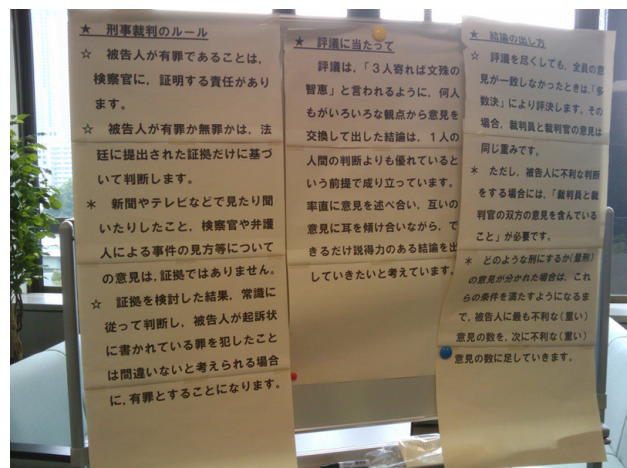 ★ 刑事裁判のルール
☆ 被告人が有罪であることは，
検察官に，証明する責任があり
ます。
☆ 被告人が有罪か無罪かは，法
廷に提出された証拠だけに基づ
いて判断します。
＊ 新聞やテレビなどで見たり聞
いたりしたこと，検察官や弁護
人による事件の見方等について
の意見は，証拠ではありません。
☆ 証拠を検討した結果，常識に
従って判断し，被告人が起訴状
に書かれている罪を犯したこと
は間違いないと考えられる場合
に，有罪とすることになります。
★ 評議に当たって
評議は，「３人寄れば文殊の
智恵」と言われるように，何人
もがいろいろな観点から意見を
交換して出した結論は，１人の
人間の判断よりも優れていると
いう前提で成り立っています。
率直に意見を述べ合い，互いの
意見に耳を傾け合いながら，で
きるだけ説得力のある結論を出
していきたいと考えています。
★ 結論の出し方
☆ 評議を尽くしても，全員の意
見が一致しなかったときは，「多
数決」により評決します。その
場合，裁判員と裁判官の意見は
同じ重みです。
＊ ただし，被告人に不利な判断
をする場合には，「裁判員と裁
判官の双方の意見を含んでいる
こと」が必要です。
＊ どのような刑にするか（量刑）
の意見が分かれた場合は，これ
らの条件を満たすようになるま
で，被告人に最も不利な（重い）
意見の数を，次に不利な（重い）
意見の数に足していきます。